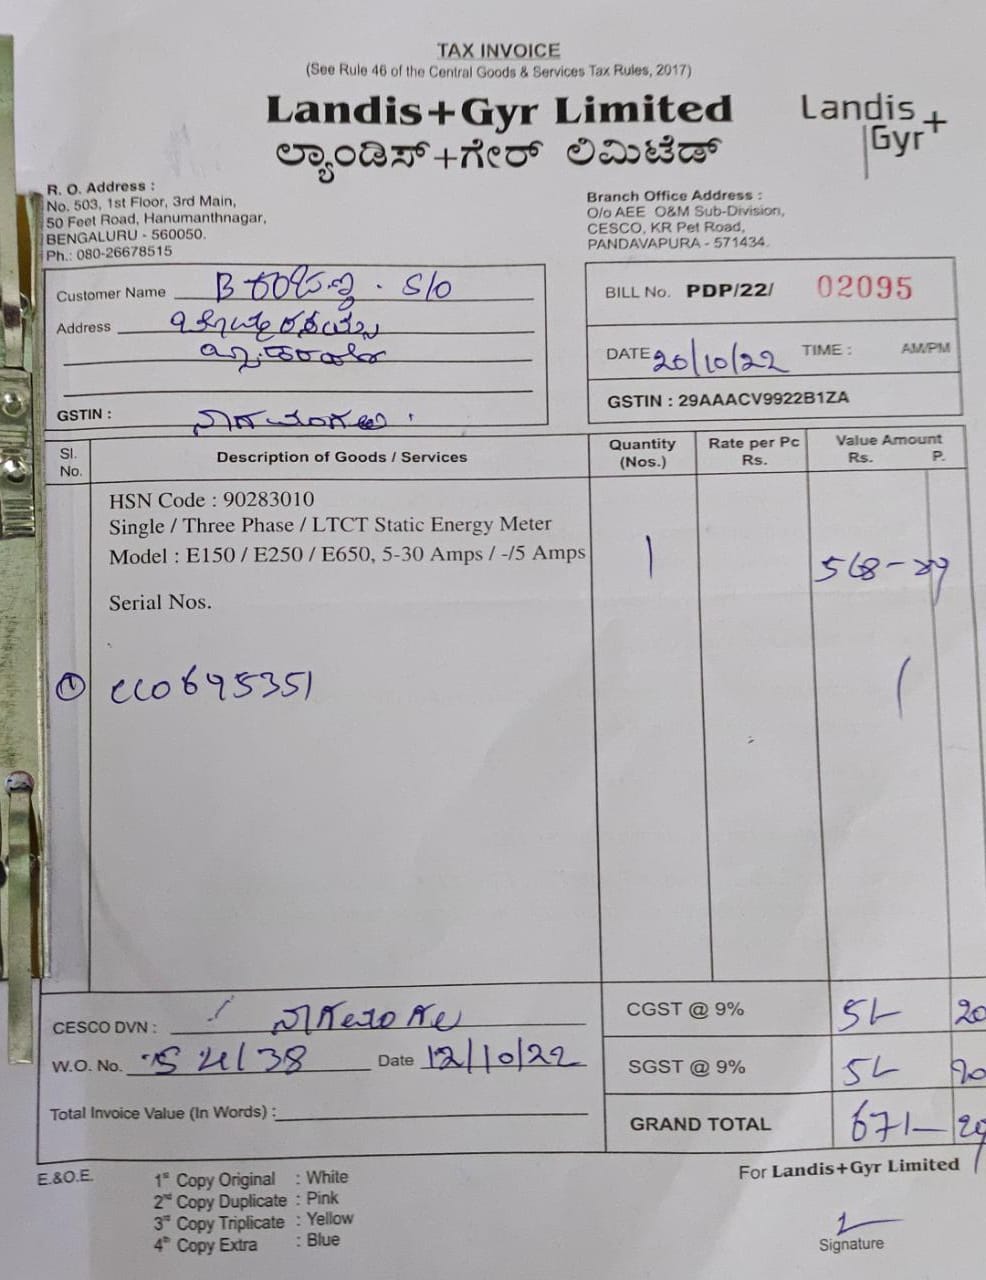 TAX INVOICE
(See Rule 46 of the Central Goods & Services Tax Rules, 2017)
Landis+Gyr Limited
ಲ್ಯಾಂಡಿಸ್+ಗೇರ್ ಲಿಮಿಟೆಡ್
Landis
Gyr+
R. O. Address :
No. 503, 1st Floor, 3rd Main,
50 Feet Road, Hanumanthnagar,
BENGALURU - 560050.
Ph.: 080-26678515
Branch Office Address :
O/o AEE O&M Sub-Division,
CESCO, KR Pet Road,
PANDAVAPURA - 571434.
Customer Name B S/o
Address
GSTIN :
BILL No. PDP/22/ 02095
DATE 20/10/22 TIME : AM/PM
GSTIN : 29AAACV9922B1ZA
Sl. No. Description of Goods / Services Quantity (Nos.) Rate per Pc Rs. Value Amount Rs. P.
HSN Code : 90283010
Single / Three Phase / LTCT Static Energy Meter
Model : E150 / E250 / E650, 5-30 Amps / -/5 Amps 1 568-89
Serial Nos.
1 CC0695351
CESCO DVN : ನಾಗಮಂಗಲ
W.O. No. Date 12/10/22
Total Invoice Value (In Words) :
CGST @ 9% 51 20
SGST @ 9% 51 20
GRAND TOTAL 671 29
E.&O.E.
1st Copy Original : White
2nd Copy Duplicate : Pink
3rd Copy Triplicate : Yellow
4th Copy Extra : Blue
For Landis+Gyr Limited
Signature